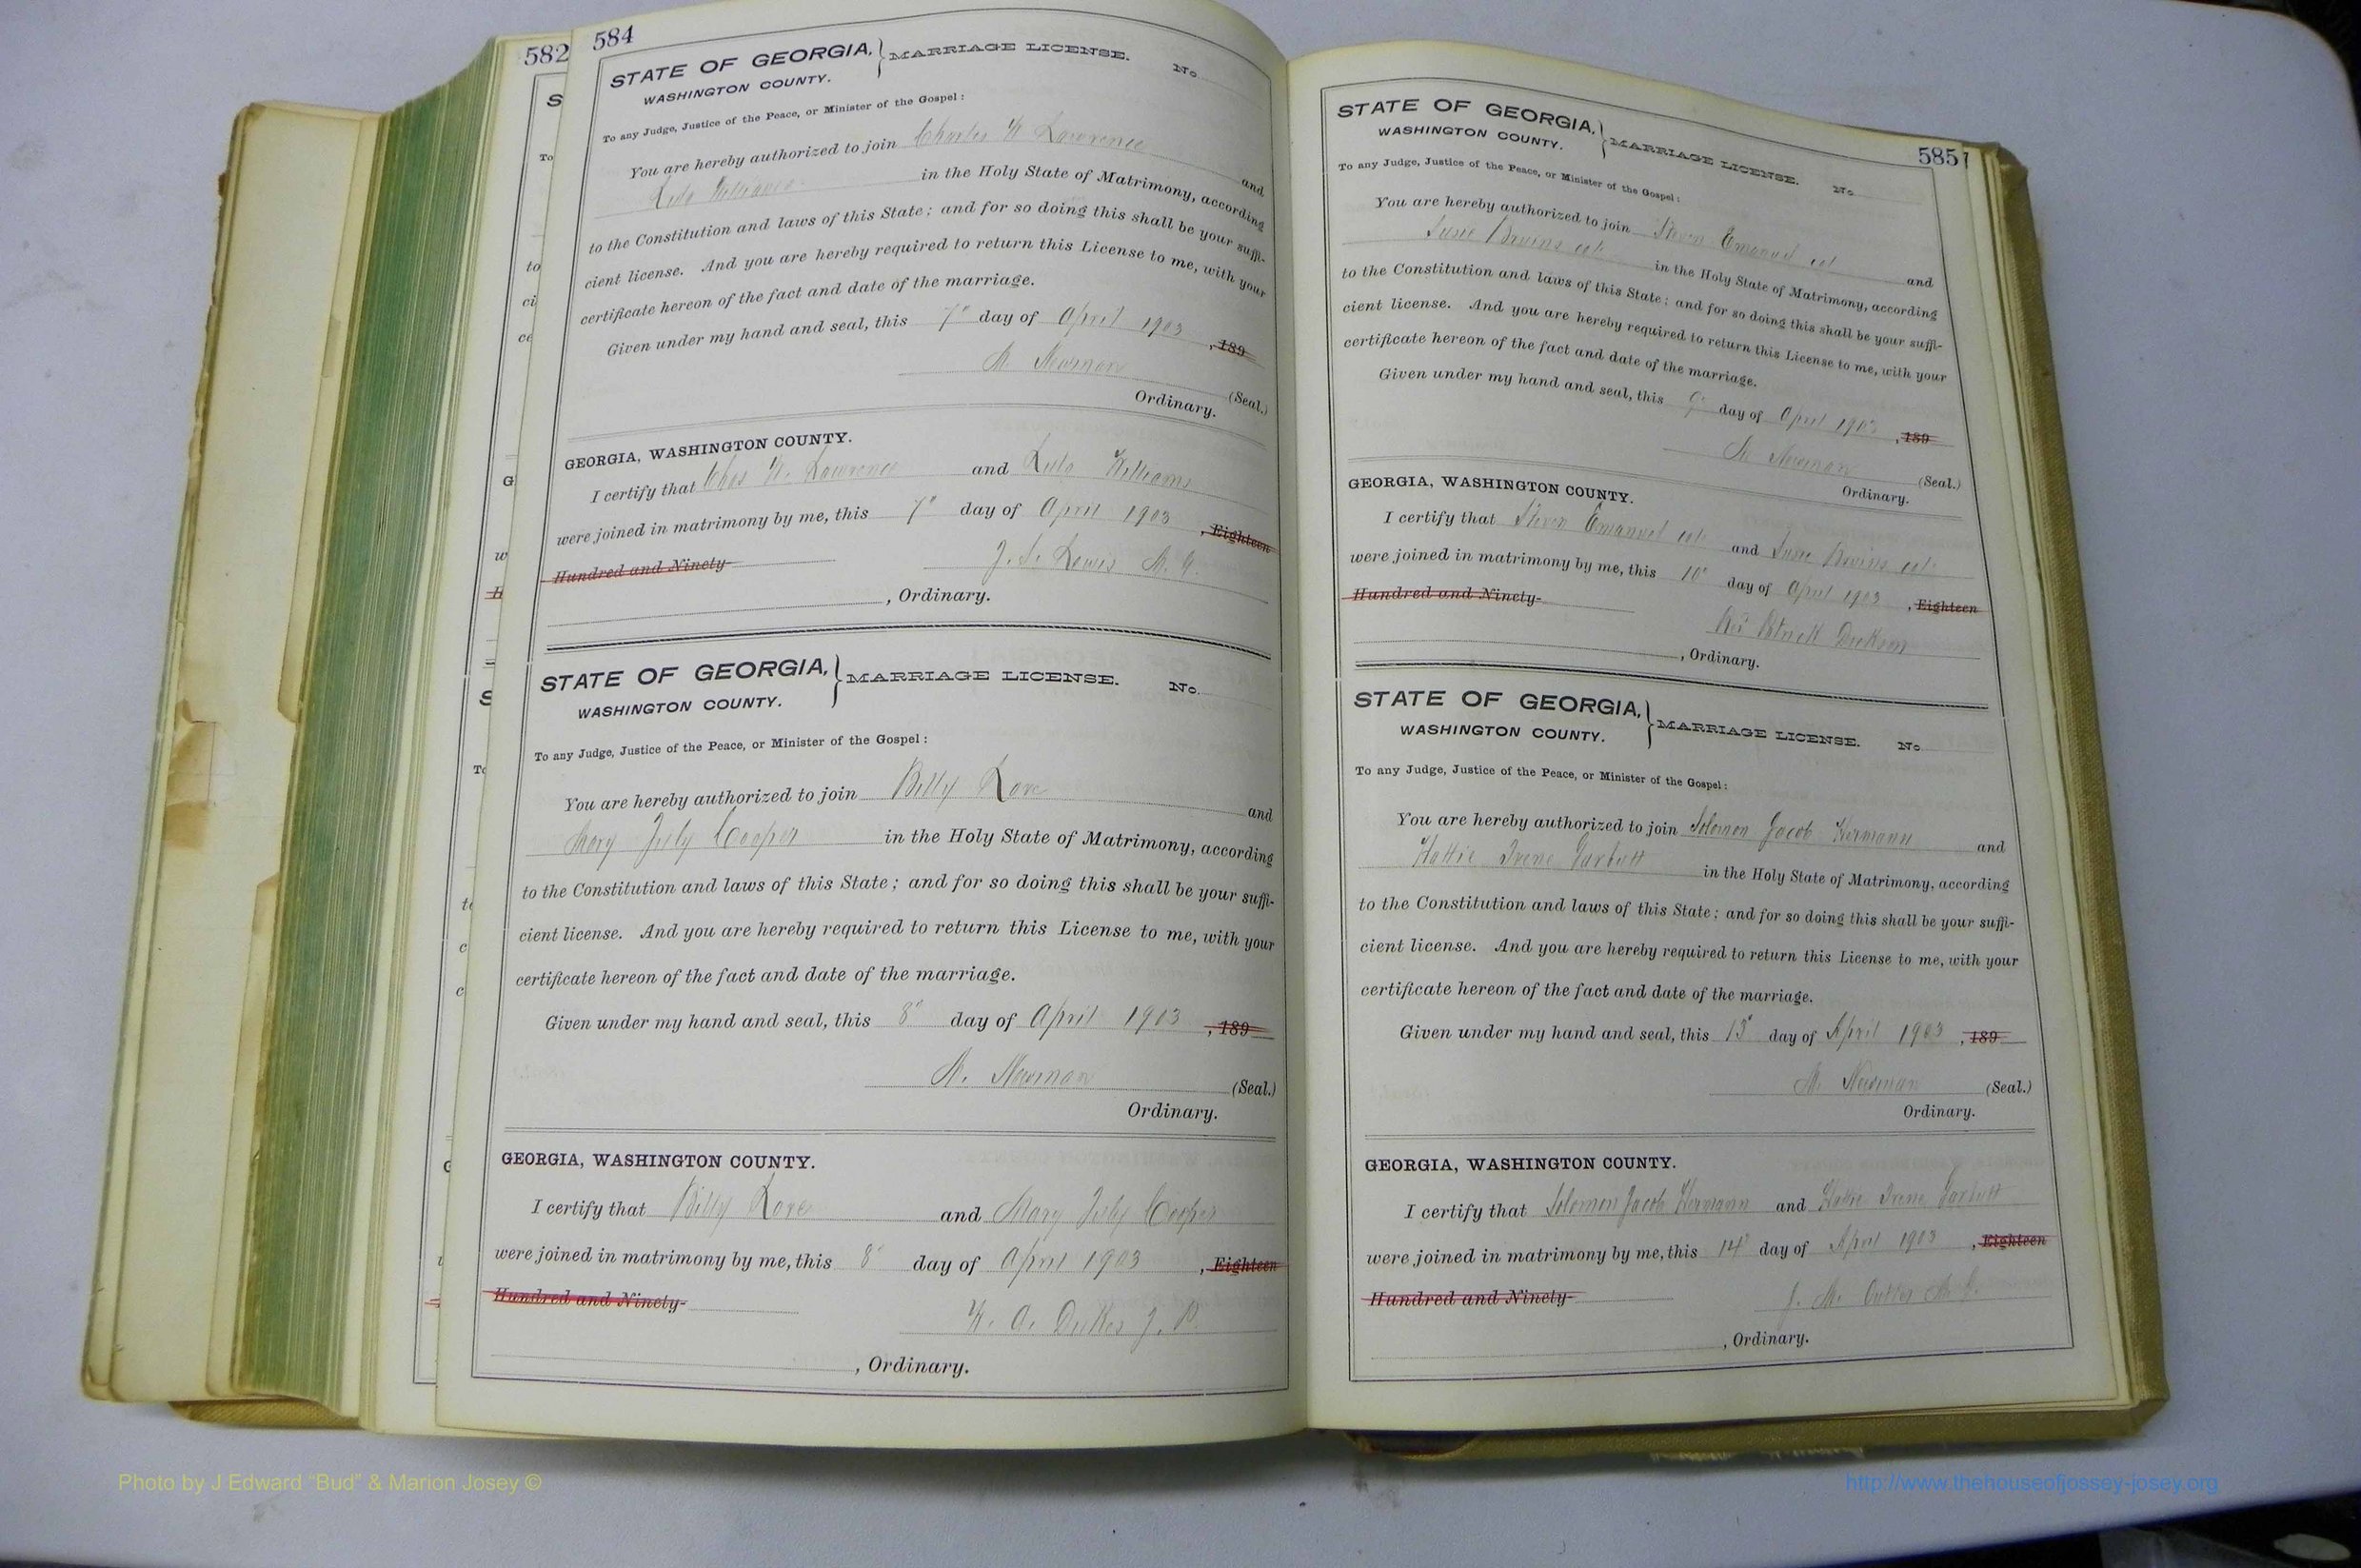 582
584
STATE OF GEORGIA, MARRIAGE LICENSE. No.
WASHINGTON COUNTY.
To any Judge, Justice of the Peace, or Minister of the Gospel:
You are hereby authorized to join Charles W Lawrence and
Lula Williams in the Holy State of Matrimony, according
to the Constitution and laws of this State; and for so doing this shall be your suffi-
cient license. And you are hereby required to return this License to me, with your
certificate hereon of the fact and date of the marriage.
Given under my hand and seal, this 7" day of April 1903, 189
M. Newman (Seal.)
Ordinary.
GEORGIA, WASHINGTON COUNTY.
I certify that Chas W. Lawrence and Lula Williams
were joined in matrimony by me, this 7" day of April 1903, Eighteen
Hundred and Ninety-
J. S. Lewis M. G.
, Ordinary.
STATE OF GEORGIA, MARRIAGE LICENSE. No.
WASHINGTON COUNTY.
To any Judge, Justice of the Peace, or Minister of the Gospel:
You are hereby authorized to join Billy Love and
Mary July Cooper in the Holy State of Matrimony, according
to the Constitution and laws of this State; and for so doing this shall be your suffi-
cient license. And you are hereby required to return this License to me, with your
certificate hereon of the fact and date of the marriage.
Given under my hand and seal, this 8" day of April 1903, 189
M. Newman (Seal.)
Ordinary.
GEORGIA, WASHINGTON COUNTY.
I certify that Billy Love and Mary July Cooper
were joined in matrimony by me, this 8" day of April 1903, Eighteen
Hundred and Ninety-
W. A. Dukes J. P.
, Ordinary.
585
STATE OF GEORGIA, MARRIAGE LICENSE. No.
WASHINGTON COUNTY.
To any Judge, Justice of the Peace, or Minister of the Gospel:
You are hereby authorized to join Steven Emanuel col and
Susie Bivins col in the Holy State of Matrimony, according
to the Constitution and laws of this State; and for so doing this shall be your suffi-
cient license. And you are hereby required to return this License to me, with your
certificate hereon of the fact and date of the marriage.
Given under my hand and seal, this 9" day of April 1903, 189
M. Newman (Seal.)
Ordinary.
GEORGIA, WASHINGTON COUNTY.
I certify that Steven Emanuel col and Susie Bivins col
were joined in matrimony by me, this 10" day of April 1903, Eighteen
Hundred and Ninety-
Rev Patrick Dickson
, Ordinary.
STATE OF GEORGIA, MARRIAGE LICENSE. No
WASHINGTON COUNTY.
To any Judge, Justice of the Peace, or Minister of the Gospel:
You are hereby authorized to join Solomon Jacob Hermann and
Hattie Irene Garbutt in the Holy State of Matrimony, according
to the Constitution and laws of this State; and for so doing this shall be your suffi-
cient license. And you are hereby required to return this License to me, with your
certificate hereon of the fact and date of the marriage.
Given under my hand and seal, this 13" day of April 1903, 189
M. Newman (Seal.)
Ordinary.
GEORGIA, WASHINGTON COUNTY.
I certify that Solomon Jacob Hermann and Hattie Irene Garbutt
were joined in matrimony by me, this 14" day of April 1903, Eighteen
Hundred and Ninety-
J. M. M. G.
, Ordinary.
Photo by J Edward "Bud" & Marion Josey ©
http://www.thehouseofjossey-josey.org